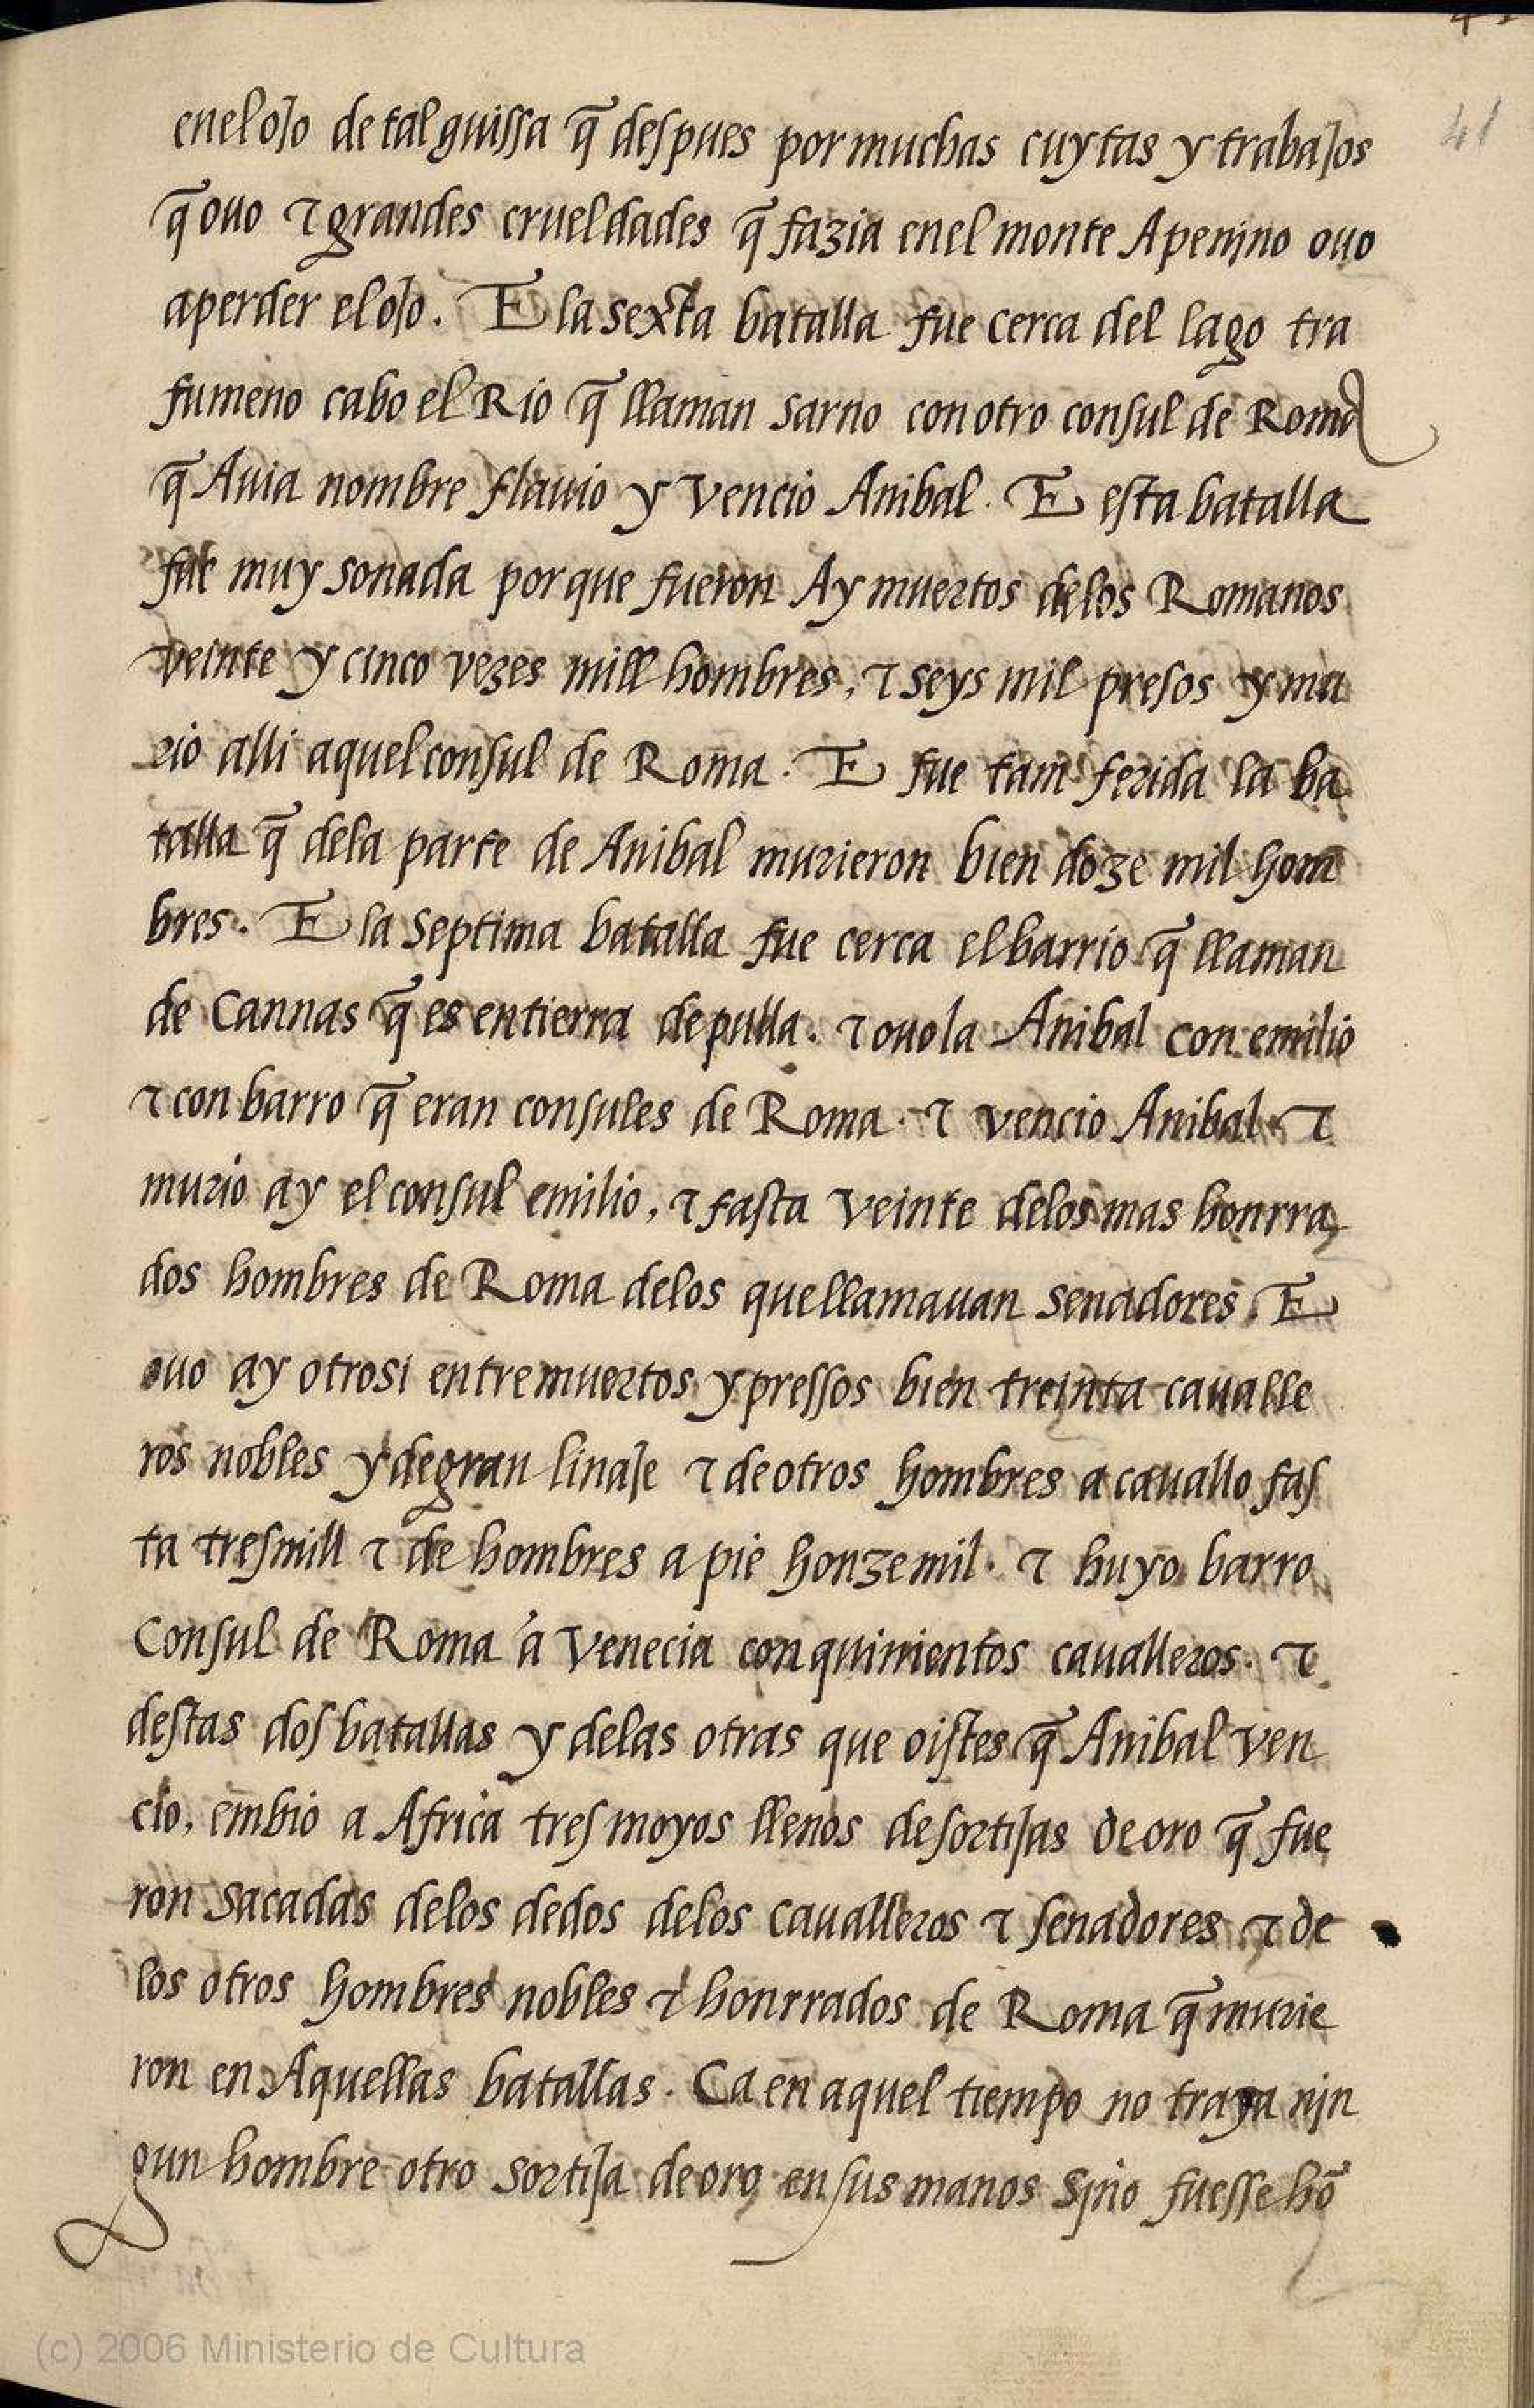 41
enel ojo de tal guissa q̃ despues por muchas cuytas y trabajos
q̃ ouo ⁊ grandes crueldades q̃ fazia enel monte Apenino ouo
aperder el ojo. E la sexta batalla fue cerca del lago tra
fumeno cabo el Rio q̃ llaman sarno con otro consul de Roma
q̃ Auia nombre flauio y vencio Anibal. E esta batalla
fue muy sonada porque fueron Ay muertos delos Romanos
veinte y cinco vezes mill hombres, ⁊ seys mil presos y mu
rio alli aquel consul de Roma. E fue tam ferida la ba
talla q̃ dela parte de Anibal murieron bien doze mil hom
bres. E la septima batalla fue cerca el barrio q̃ llaman
de Cannas q̃ es en tierra de pulla. ⁊ ouola Anibal con emilio
⁊ con barro q̃ eran consules de Roma. ⁊ vencio Anibal ⁊
murio ay el consul emilio, ⁊ fasta veinte delos mas honrra
dos hombres de Roma delos que llamauan senadores. E
ouo ay otrosi entre muertos y pressos bien treinta caualle
ros nobles y de gran linaje ⁊ de otros hombres a cauallo fas
ta tres mill ⁊ de hombres a pie honze mil. ⁊ huyo barro
Consul de Roma a Venecia con quinientos caualleros. ⁊
destas dos batallas y delas otras que oistes q̃ Anibal ven
cio, embio a Africa tres moyos llenos de sortijas de oro q̃ fue
ron sacadas delos dedos delos caualleros ⁊ senadores ⁊ de
los otros hombres nobles ⁊ honrrados de Roma q̃ murie
ron en Aquellas batallas. Ca en aquel tiempo no traya njn
gun hombre otro sortija de oro en sus manos sjno fuesse hõ
(c) 2006 Ministerio de Cultura